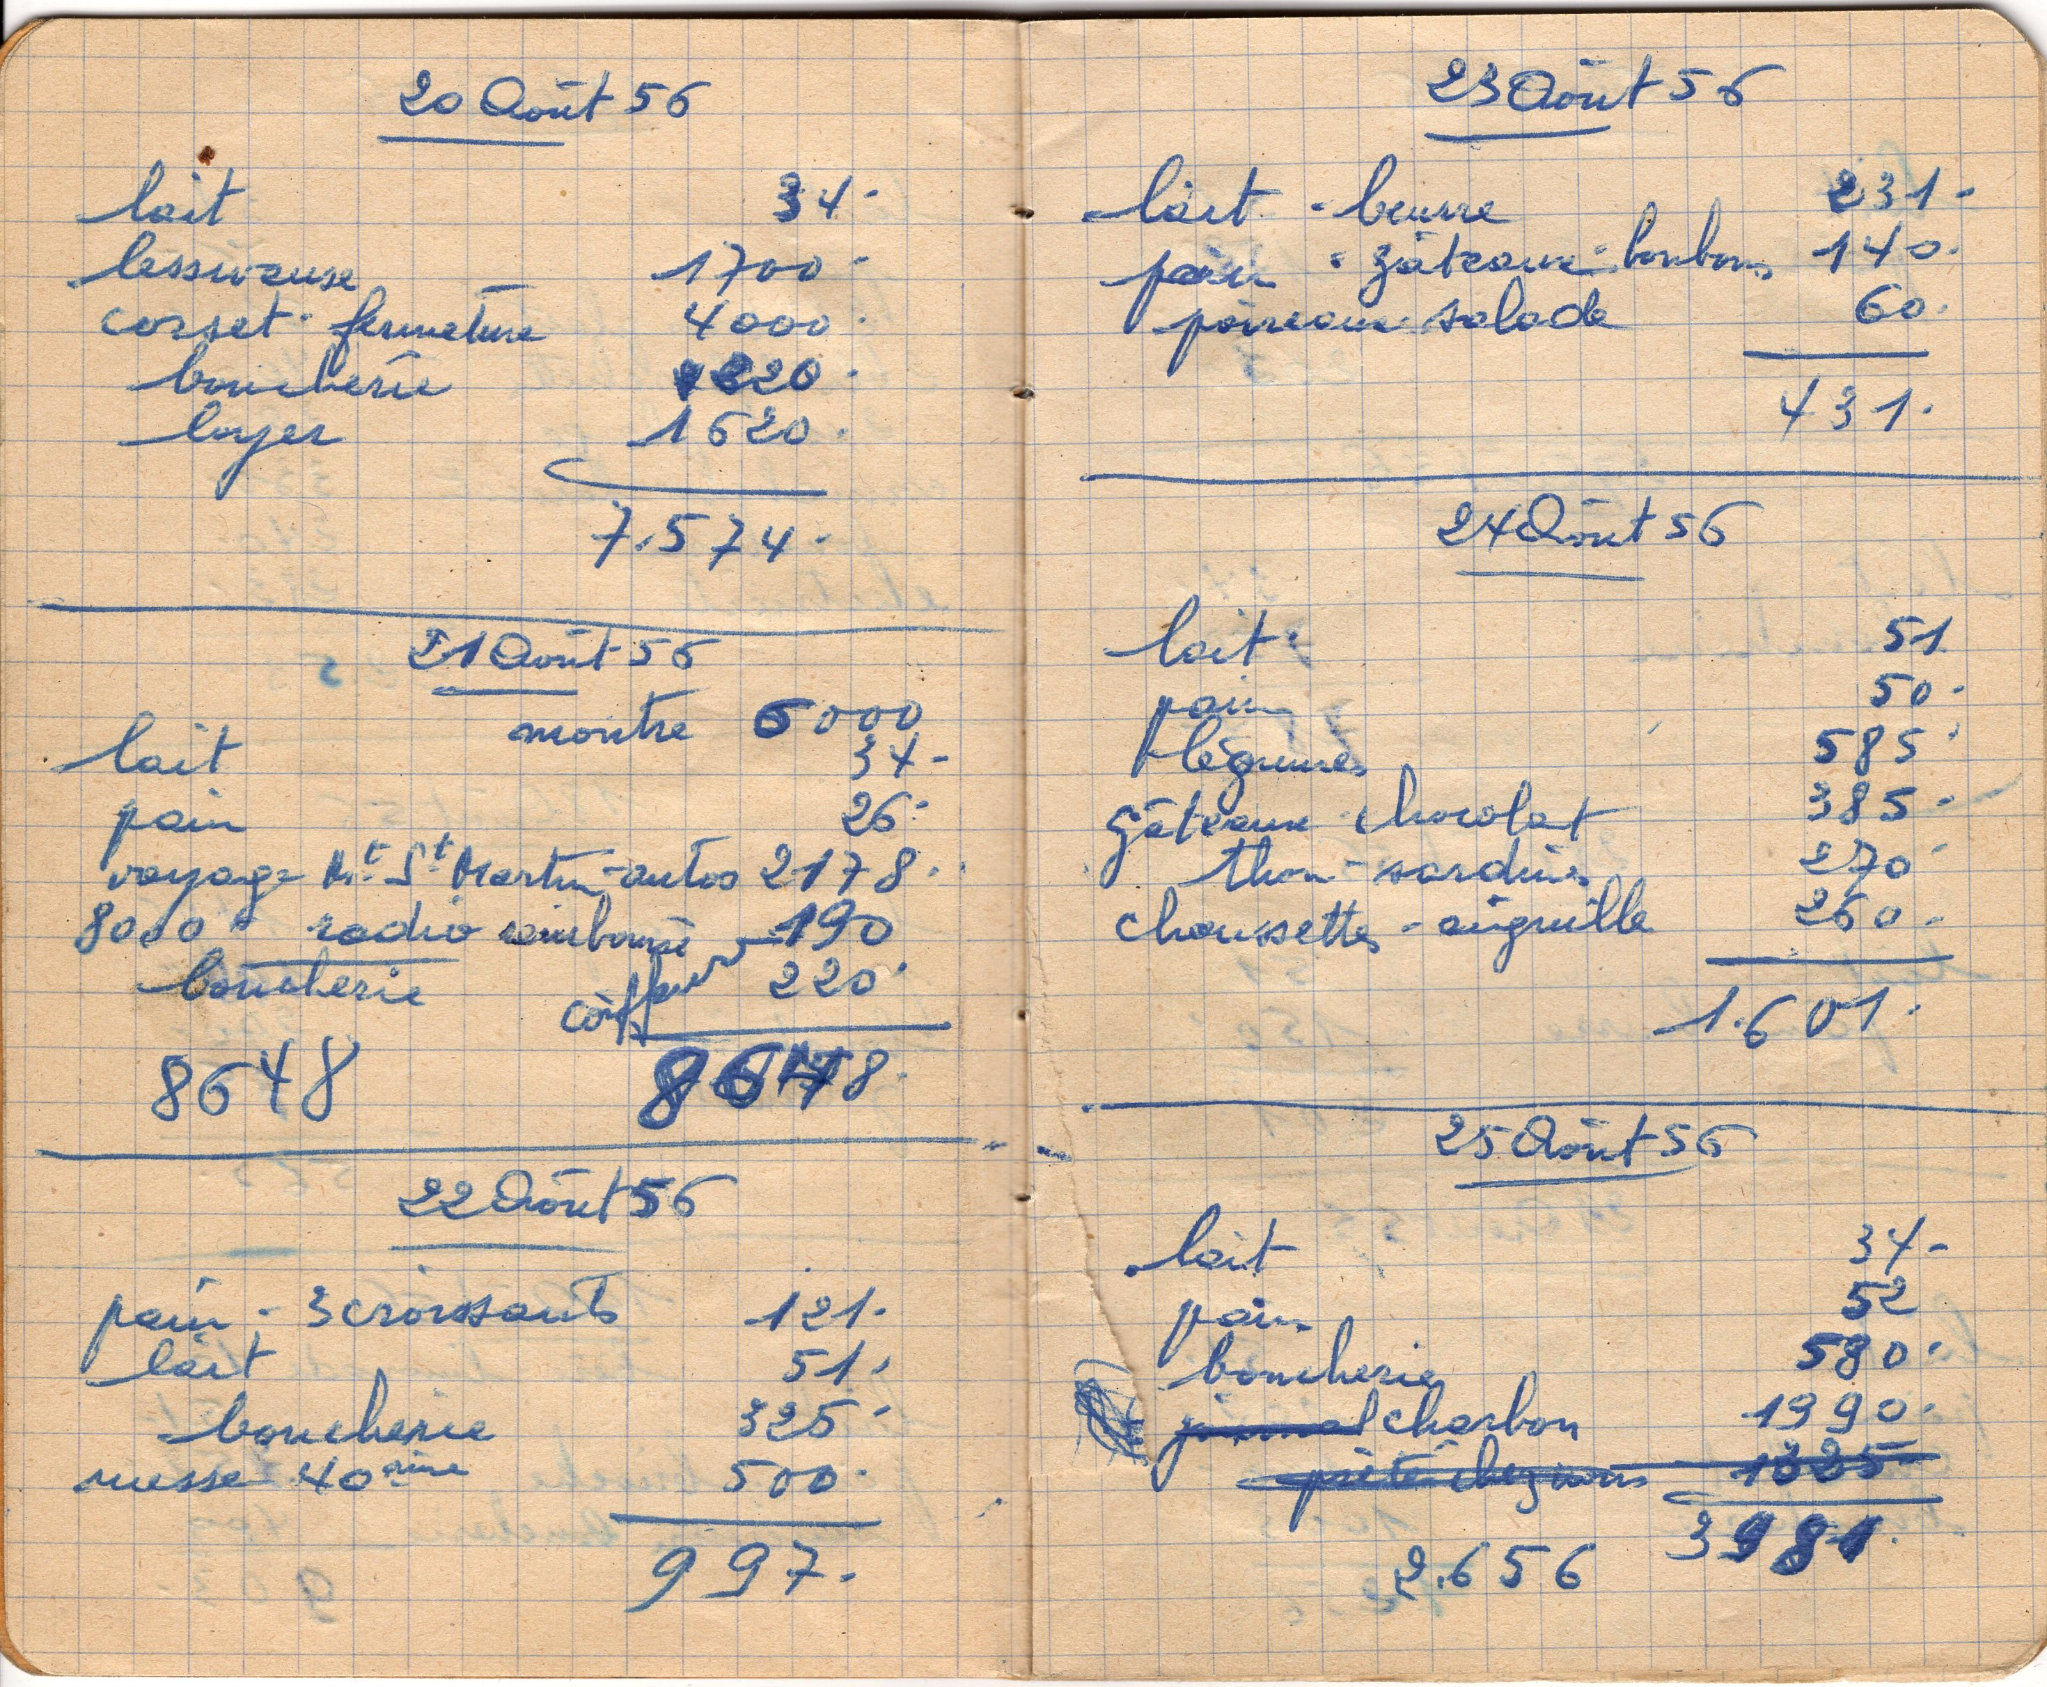 20 Août 56
lait 34.
lessiveuse 1700.
corset. fermeture 4000.
boucherie 220.
loyer 1620.
7.574.
21 Août 56
montre 6000
lait 34-
pain 26.
voyage Mt. St Martin-autos 2178.
8000 radio remboursé 190
boucherie coiffeur 220.
8648 8648.
22 Août 56
pain - 3 croissants 121.
lait 51.
boucherie 325.
messe 40aine 500.
997.
23 Août 56
lait - beurre 231-
pain - gâteaux - bonbons 140.
poireaux salade 60.
431.
24 Août 56
lait 51.
pain 50.
légumes 585.
gâteaux chocolat 385.
thon - sardines 270.
chaussettes - aiguille 260.
1.601.
25 Août 56
lait 34-
pain 52
boucherie 580.
journal charbon 1990.
prêté chez nous 1325
3981.
2.656